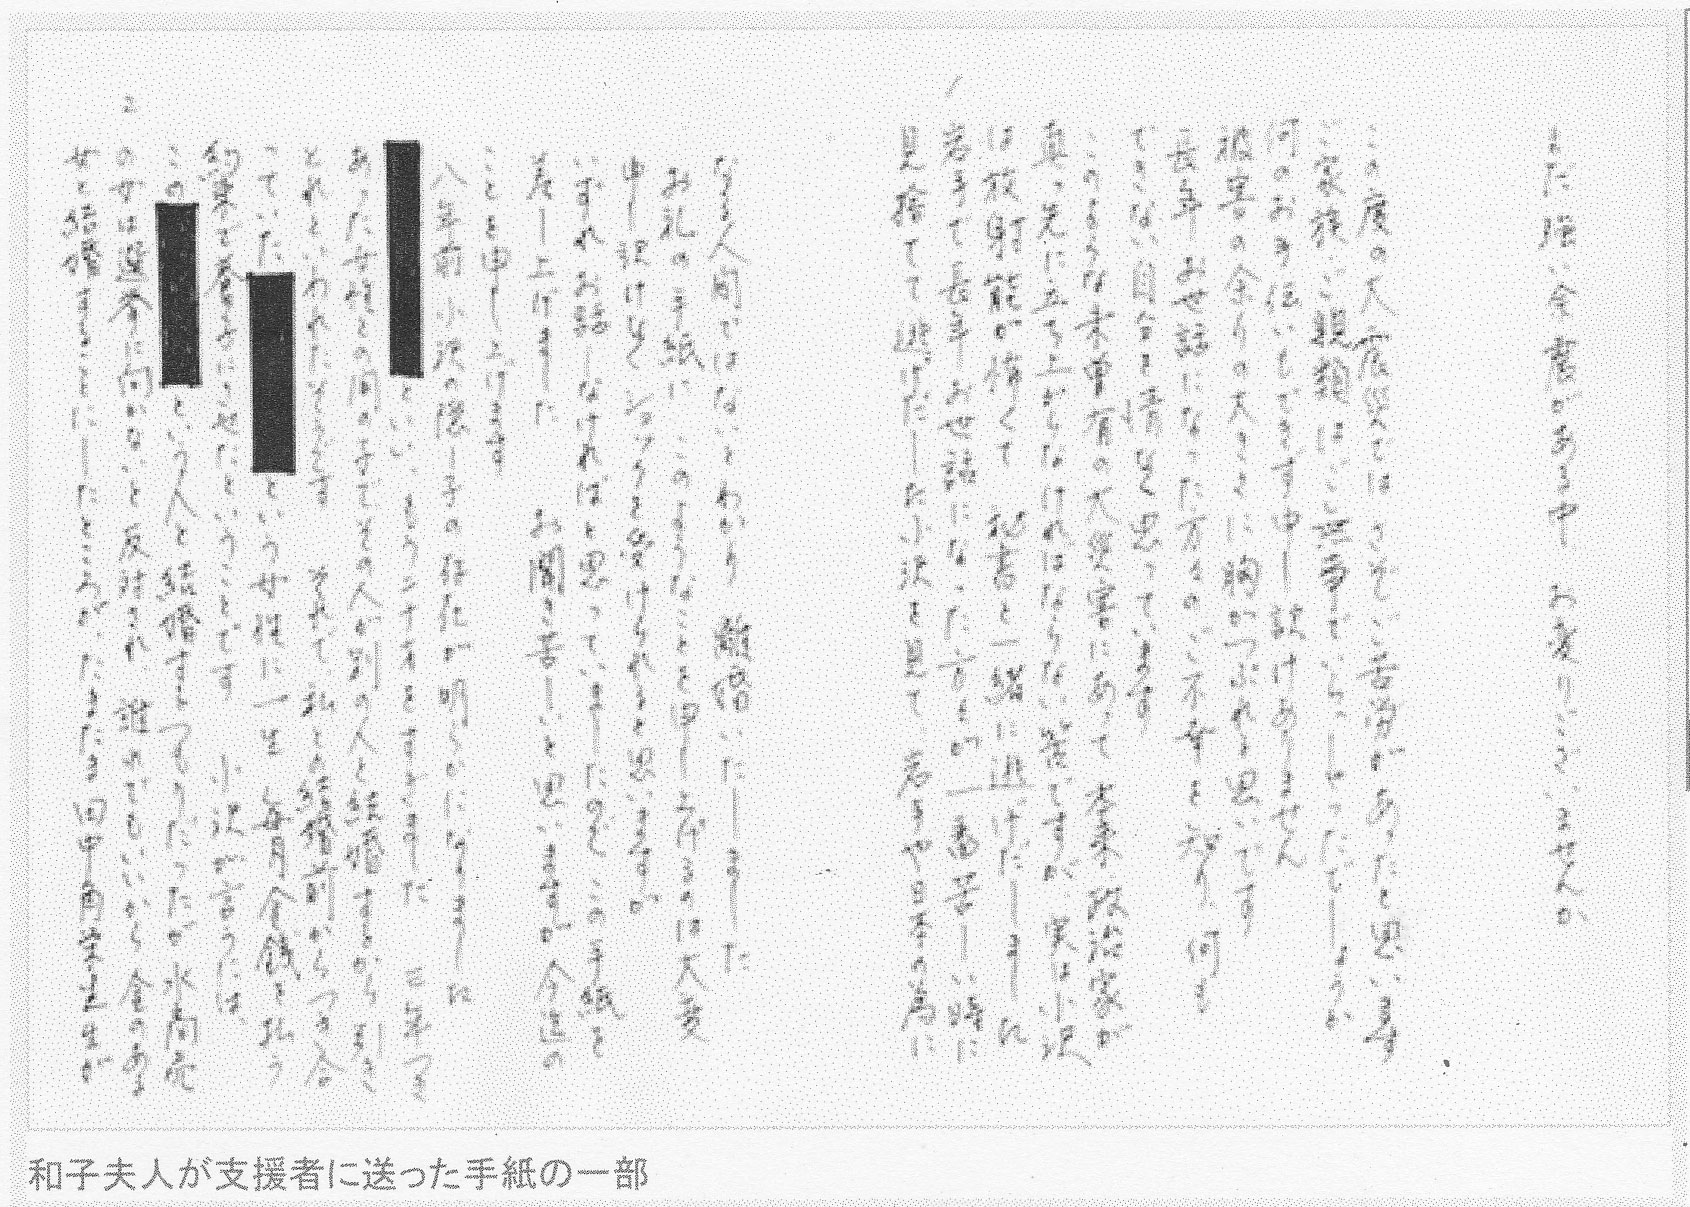 まだ強い余震がある中 お変りございませんか
この度の大震災ではさぞご苦労があったと思います
ご家族・ご親類はご無事でいらっしゃったでしょうか
何のお手伝いもできず申し訳けありません
被害の余りの大きさに胸がつぶれる思いです
長年お世話になった方々のご不幸を知り何も
できない自分を情なく思っています
このような未曽有の大災害にあって本来政治家が
真っ先に立ち上がらなければならない筈ですが実は小沢
は放射能が怖くて秘書と一緒に逃げだしました
岩手で長年お世話になった方々が一番苦しい時に
見捨てて逃げだした小沢を見て岩手や日本の為に
1
なる人間ではないとわかり 離婚いたしました
お礼の手紙にこのようなことを申し上げるのは大変
申し訳けなくショックを受けられると思いますが
いずれお話しなければと思っていましたのでこの手紙を
差し上げました お聞き苦しいと思いますが今迄の
ことを申し上げます
八年前小沢の隠し子の存在が明らかになりました
といい、もう二十才をすぎました 三年つき
あった女性との間の子でその人が別の人と結婚するから引き
とれといわれたそうです それで私との結婚前からつき合
っていた
という女性に一生毎月金銭を払う
約束で養子にさせたということです 小沢が言うには
この
という人と結婚するつもりだったが水商売
の女は選挙に向かないと反対され 誰れでもいいから金のある
2
女と結婚することにしたところが、たまたま田中角栄先生が
和子夫人が支援者に送った手紙の一部